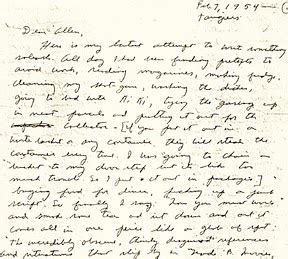 Feb 7, 1954
Tangiers
Dear Allen,
Here is my latest attempt to write something
saleable. All day I had been finding pretexts to
avoid work, reading magazines, making fudge,
cleaning my shot gun, washing the dishes,
going to bed with Ki Ki, tying the garbage up
in neat parcels and putting it out for the
collector - [If you put it out in a
waste basket or any container, they will steal the
container every time. I was going to chain a
bucket to my door step but it's like too
much trouble. So I put it out in packages]
buying food for dinner, picking up a junk
script. So finally I say: "Now you must work"
and smoke some tea and sit down and out it
comes all in one piece like a glob of spit
The incredibly obscene, thinly disguised references
and intentions that slip by in